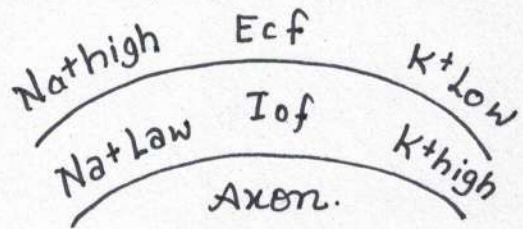 Na+high Ecf K+Low
Na+Law Iof K+high
Axon.